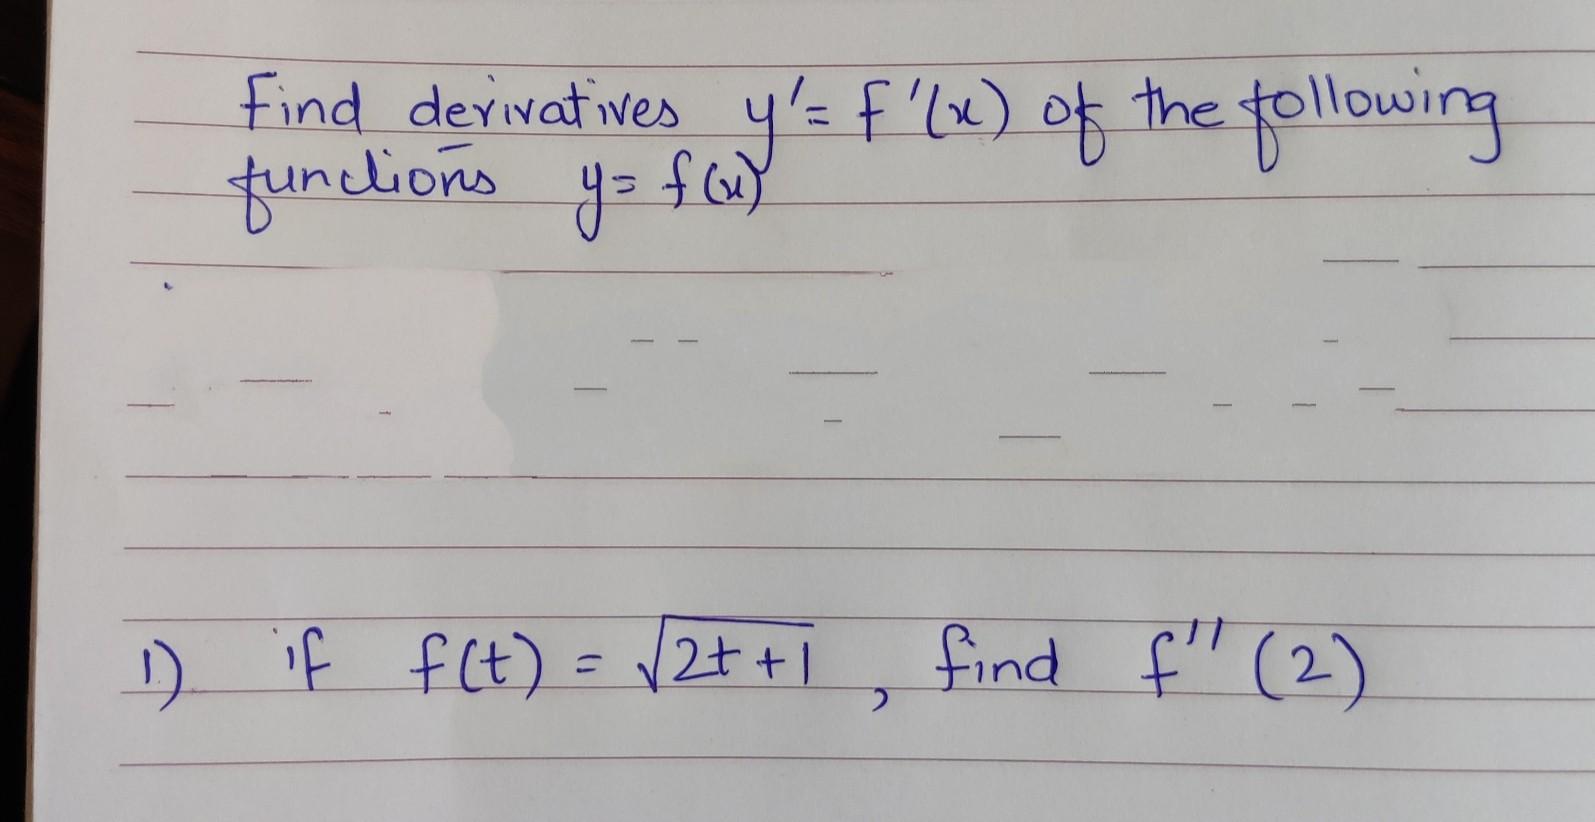 Find derivatives y' = f'(x) of the following
functions y = f(x)
1) if f(t) = √2t+1 , find f''(2)